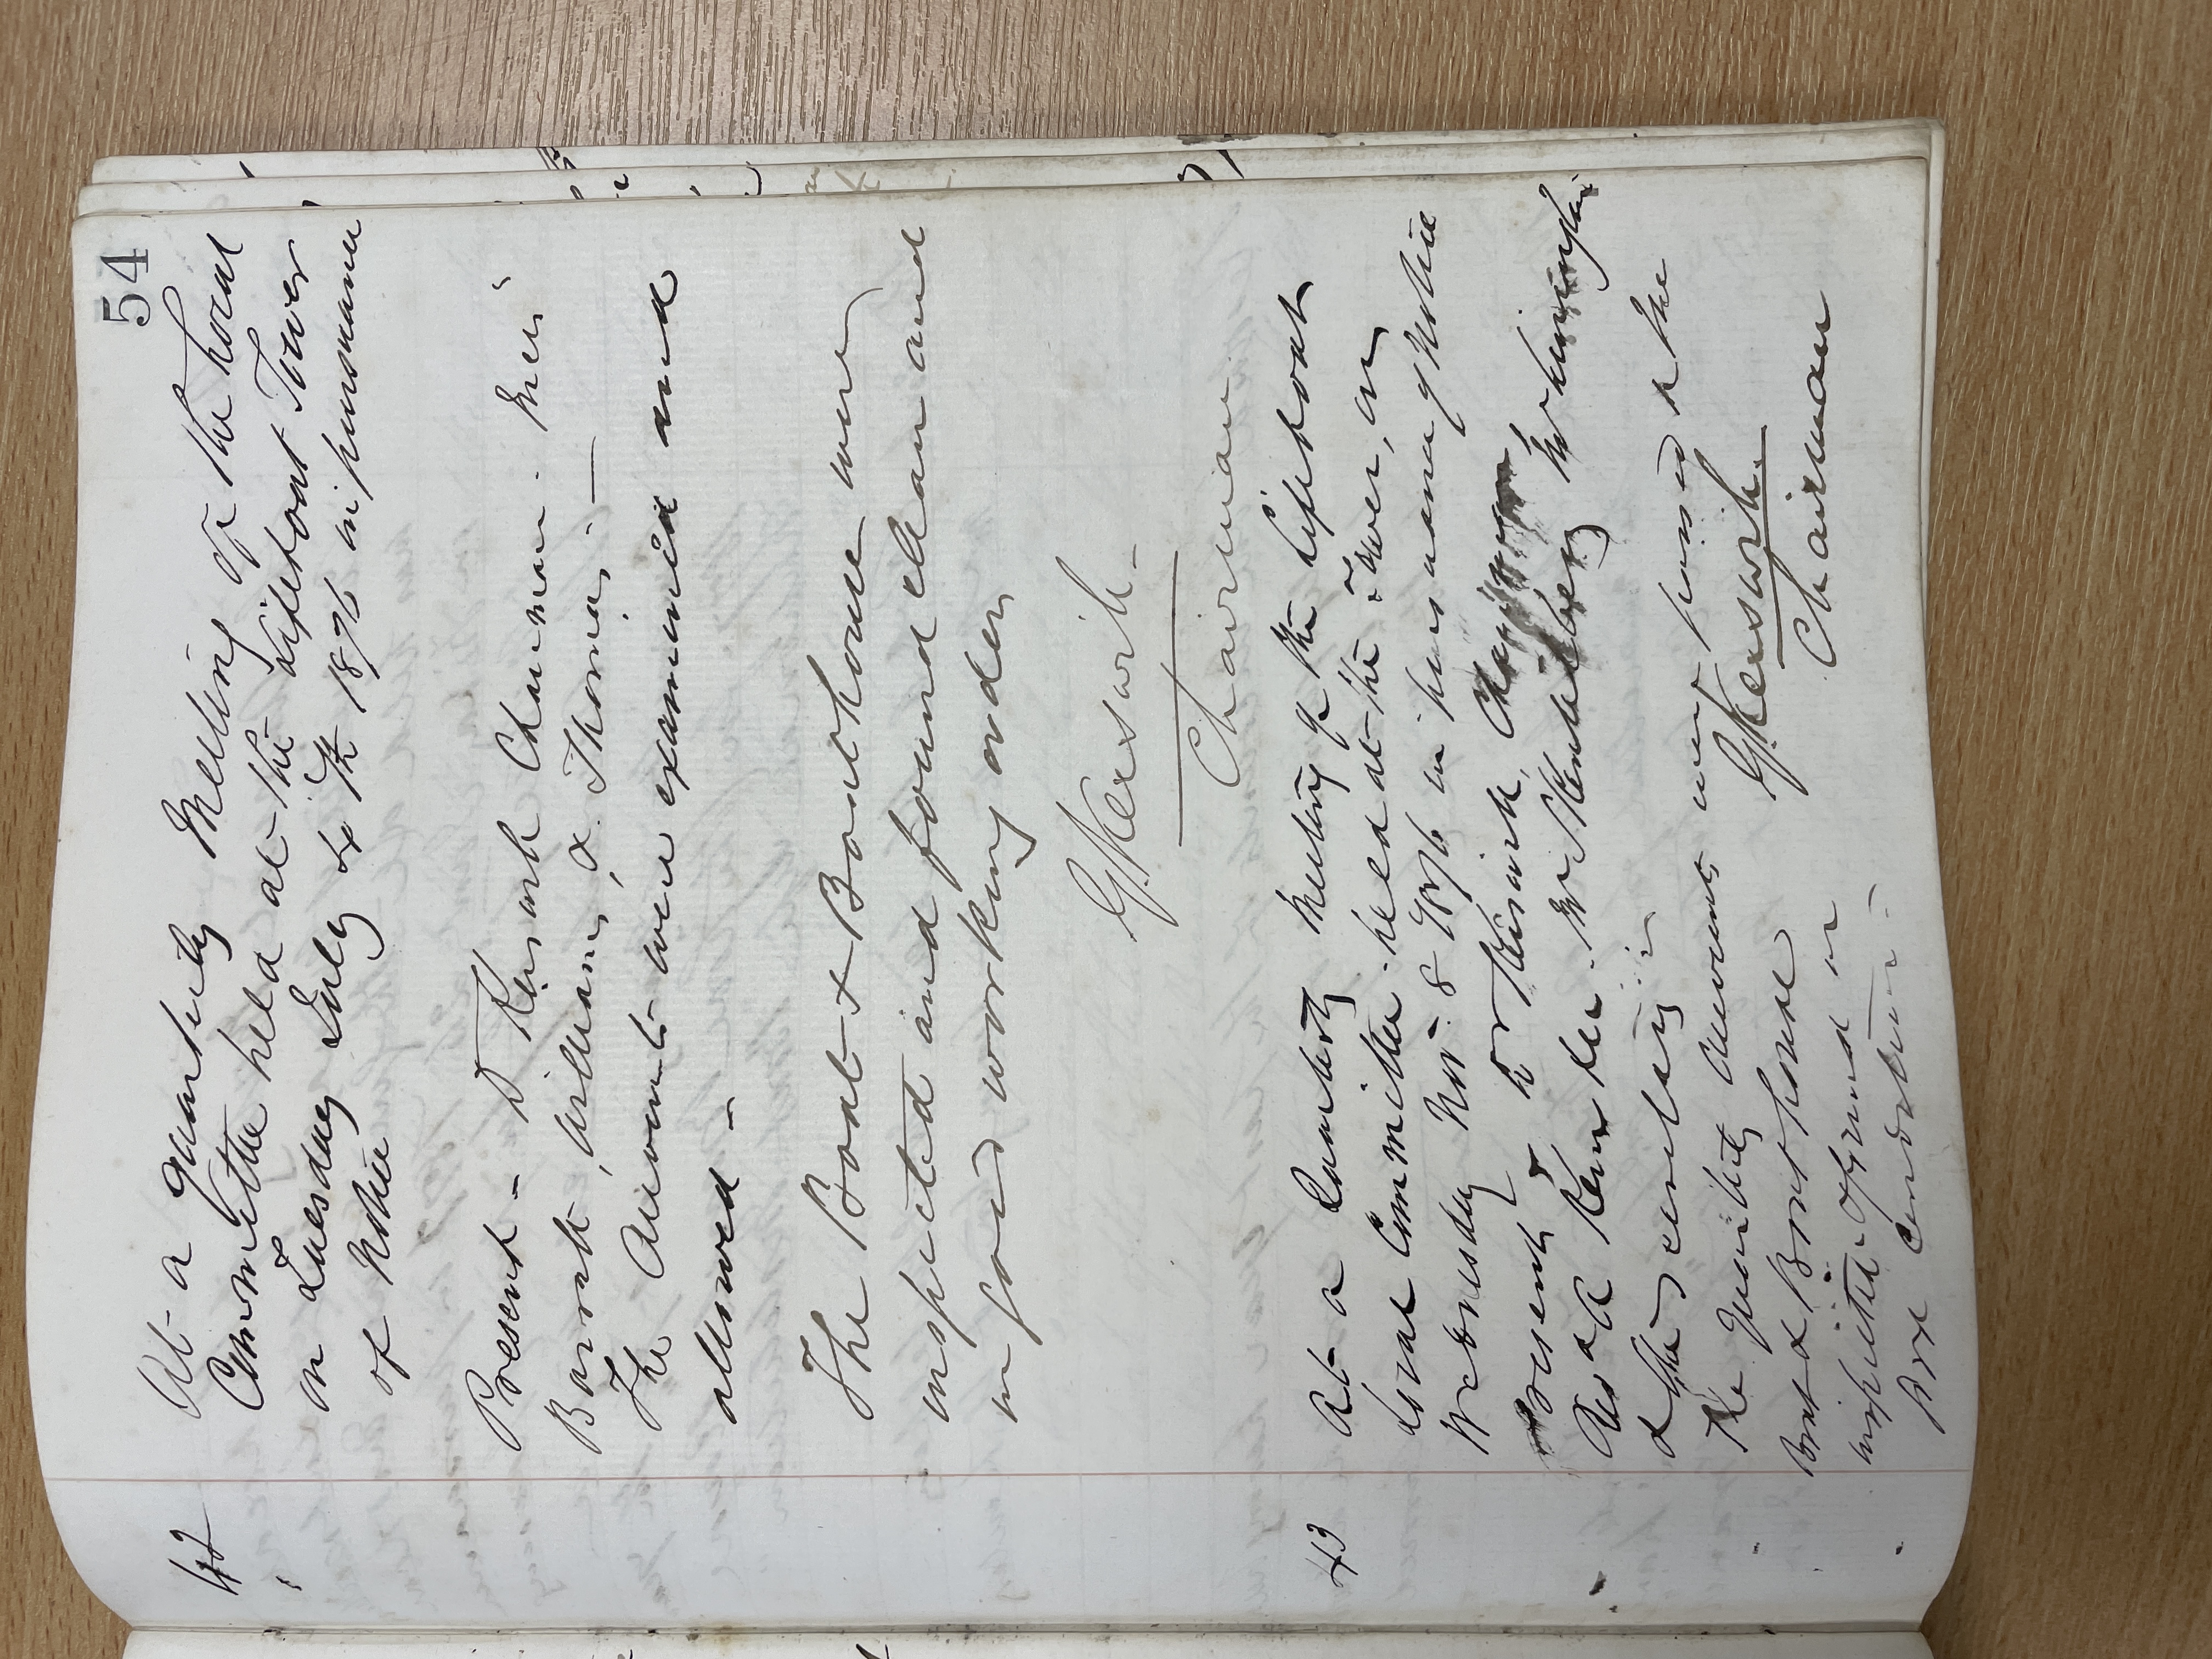 54
42
At a Quarterly Meeting of the Local
Committee held at the Lifeboat Tower
on Tuesday July 4th 1876 in pursuance
of Notice
Present - D Keswick Chairman.
Barratt, Williams, & Thomas. —
The Accounts were examined and
allowed -
The Boat & Boathouse were
inspected and found clean and
in good working order
G. Kerswick -
Chairman
43
At a Quarterly Meeting of the Lifeboat
Local Committee held at the Tower, on
Wednesday Nov. 8 1876 in pursuance of Notice
Present Chairman
& the
The Quarterly Accounts were passed & the
Boat & Boat house
inspected & found in
good condition -
G. Kerswick.
Chairman